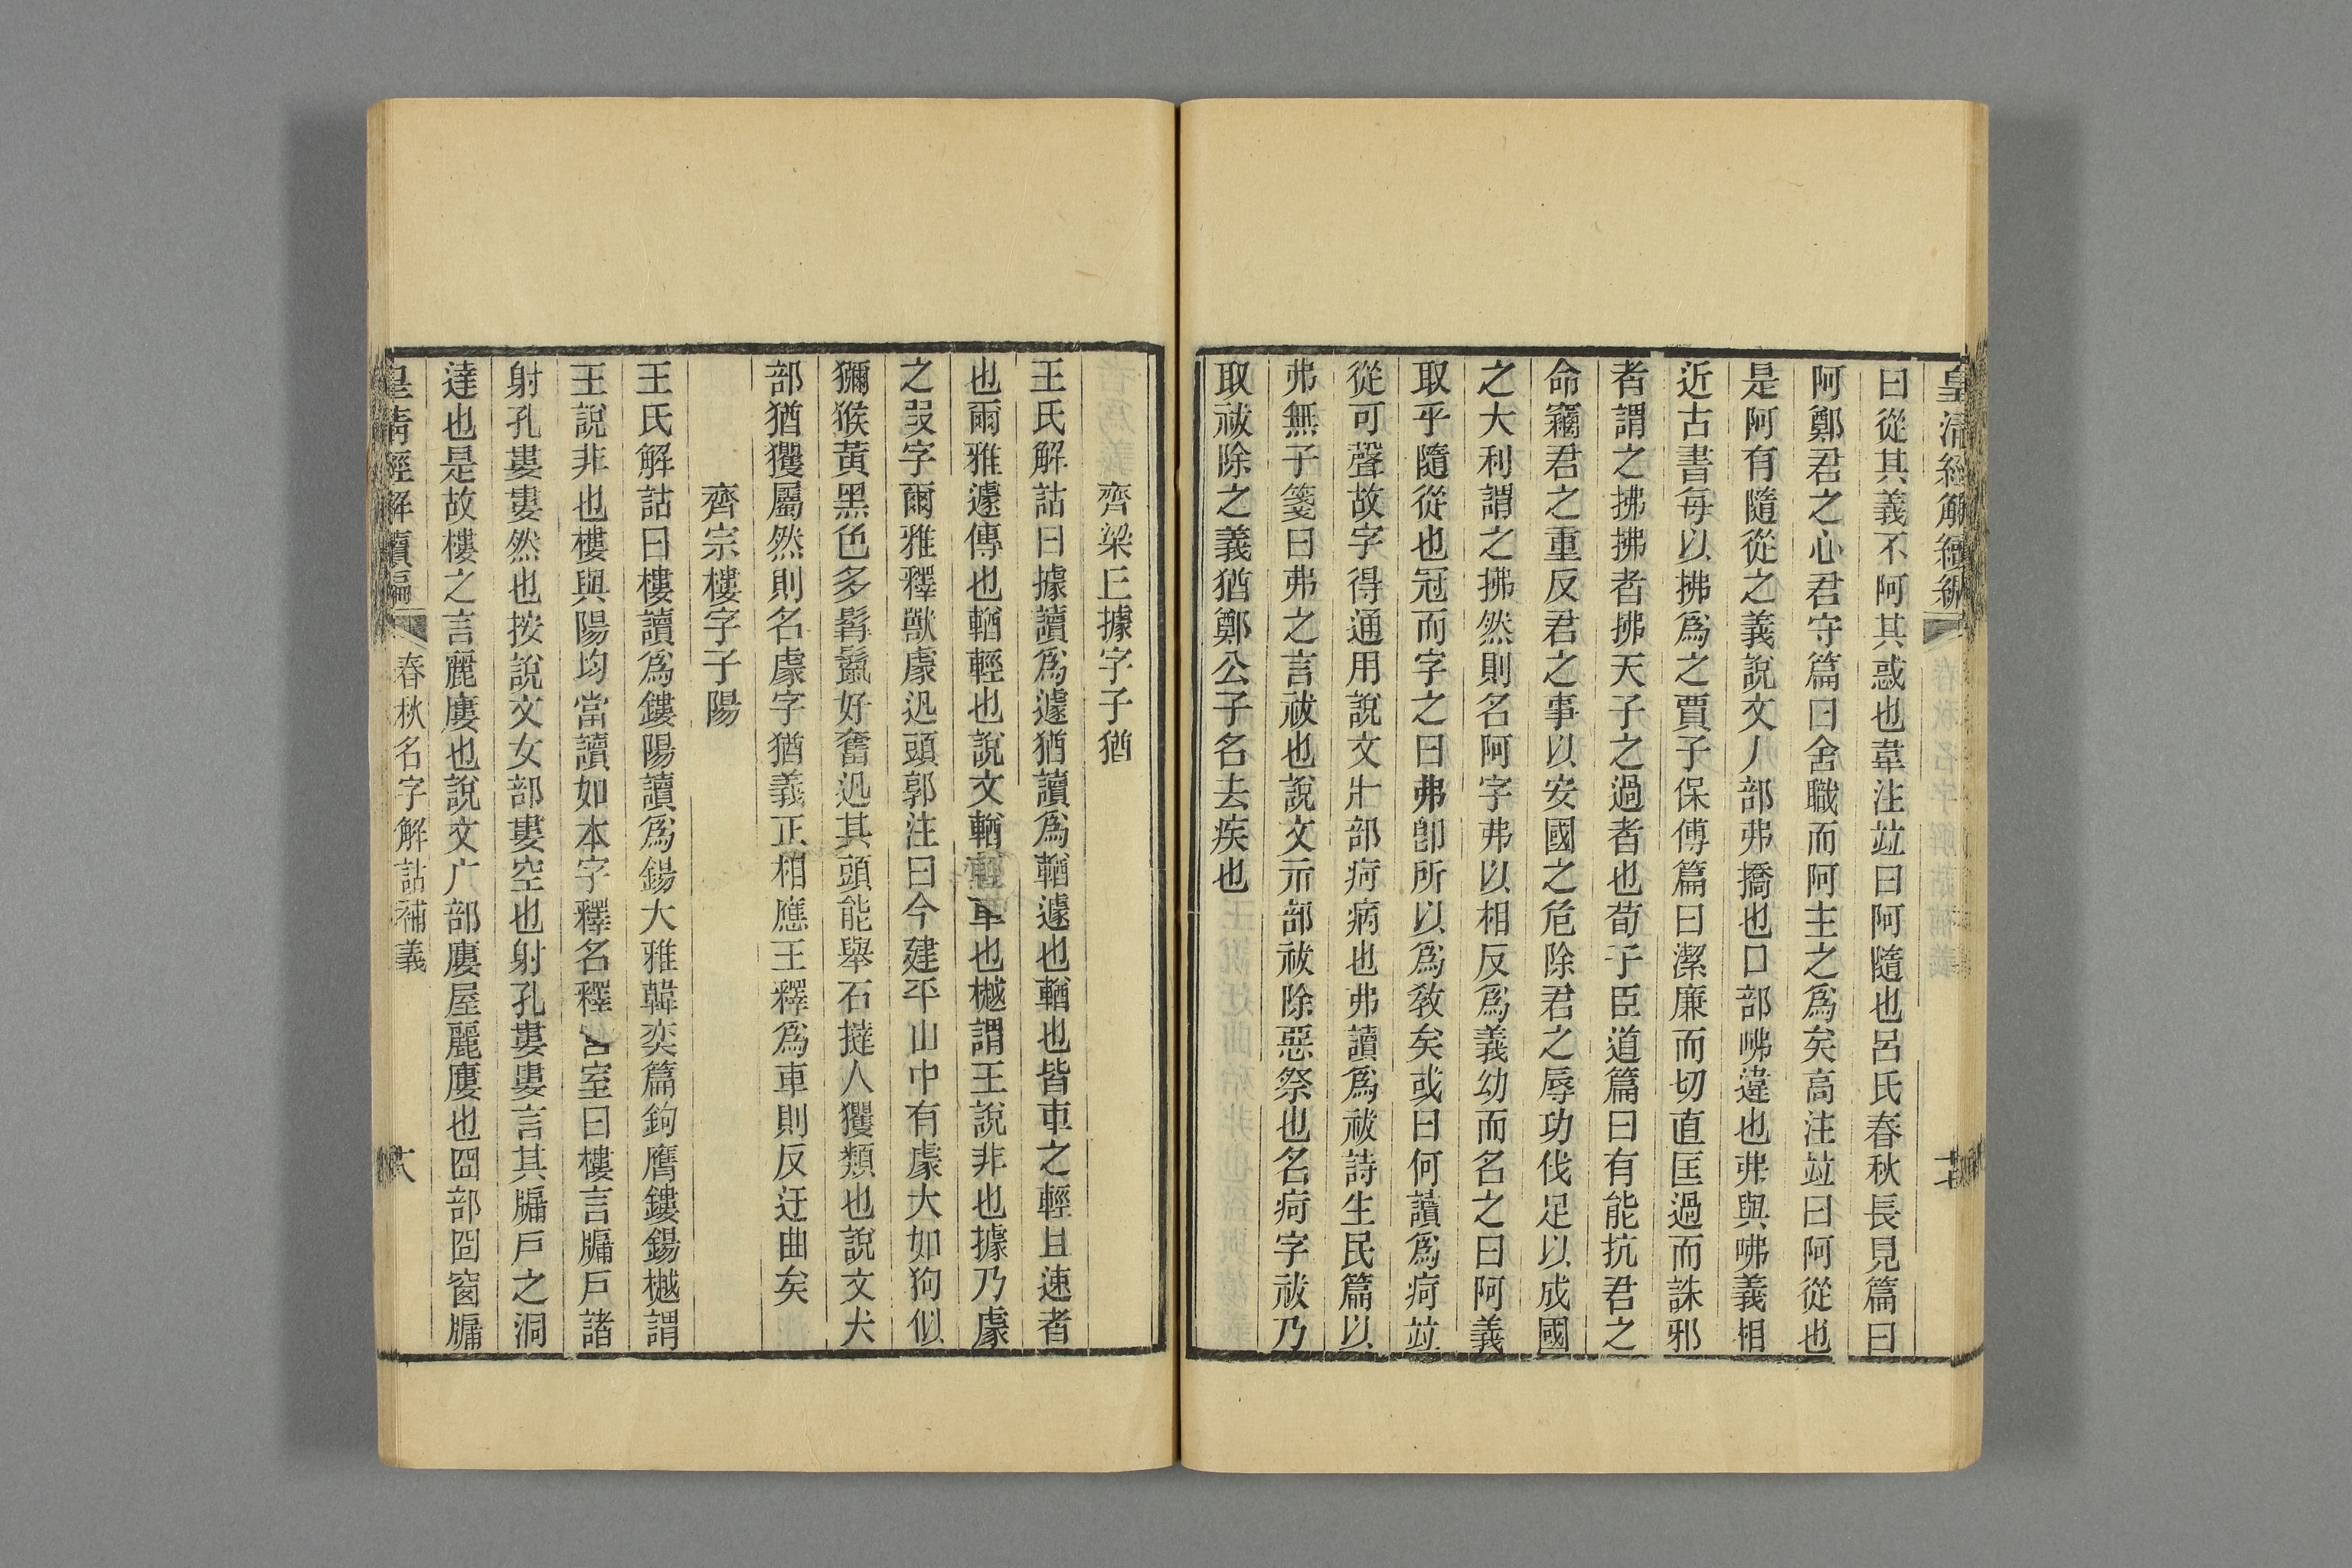 皇清經解續編
曰從其義不阿其惑也韋注竝曰阿隨也呂氏春秋長見篇曰
阿鄭君之心君守篇曰舍職而阿主之爲矣高注竝曰阿從也
是阿有隨從之義說文丿部弗撟也口部咈違也弗與咈義相
近古書每以拂爲之賈子保傅篇曰潔廉而切直匡過而誅邪
者謂之拂拂者拂天子之過者也荀子臣道篇曰有能抗君之
命竊君之重反君之事以安國之危除君之辱功伐足以成國
之大利謂之拂然則名阿字弗以相反爲義幼而名之曰阿義
取乎隨從也冠而字之曰弗卽所以爲敎矣或曰何讀爲疴竝
從可聲故字得通用說文疒部疴病也弗讀爲祓詩生民篇以
弗無子箋曰弗之言祓也說文示部祓除惡祭也名疴字祓乃
取祓除之義猶鄭公子名去疾也
齊梁丘據字子猶
王氏解詁曰據讀爲遽猶讀爲輶遽也輶也皆車之輕且速者
也爾雅遽傳也輶輕也說文輶輕車也樾謂王說非也據乃豦
之叚字爾雅釋獸豦迅頭郭注曰今建平山中有豦大如狗似
獼猴黃黑色多髯鬣好奮迅其頭能舉石擿人玃類也說文犬
部猶玃屬然則名豦字猶義正相應王釋爲車則反迂曲矣
齊宗樓字子陽
王氏解詁曰樓讀爲鏤陽讀爲鍚大雅韓奕篇鉤膺鏤鍚樾謂
王說非也樓與陽均當讀如本字釋名釋宮室曰樓言牖戶諸
射孔婁婁然也按說文女部婁空也射孔婁婁言其牖戶之洞
達也是故樓之言麗廔也說文广部廔屋麗廔也囧部囧窗牖
皇淸經解續編 春秋名字解詁補義